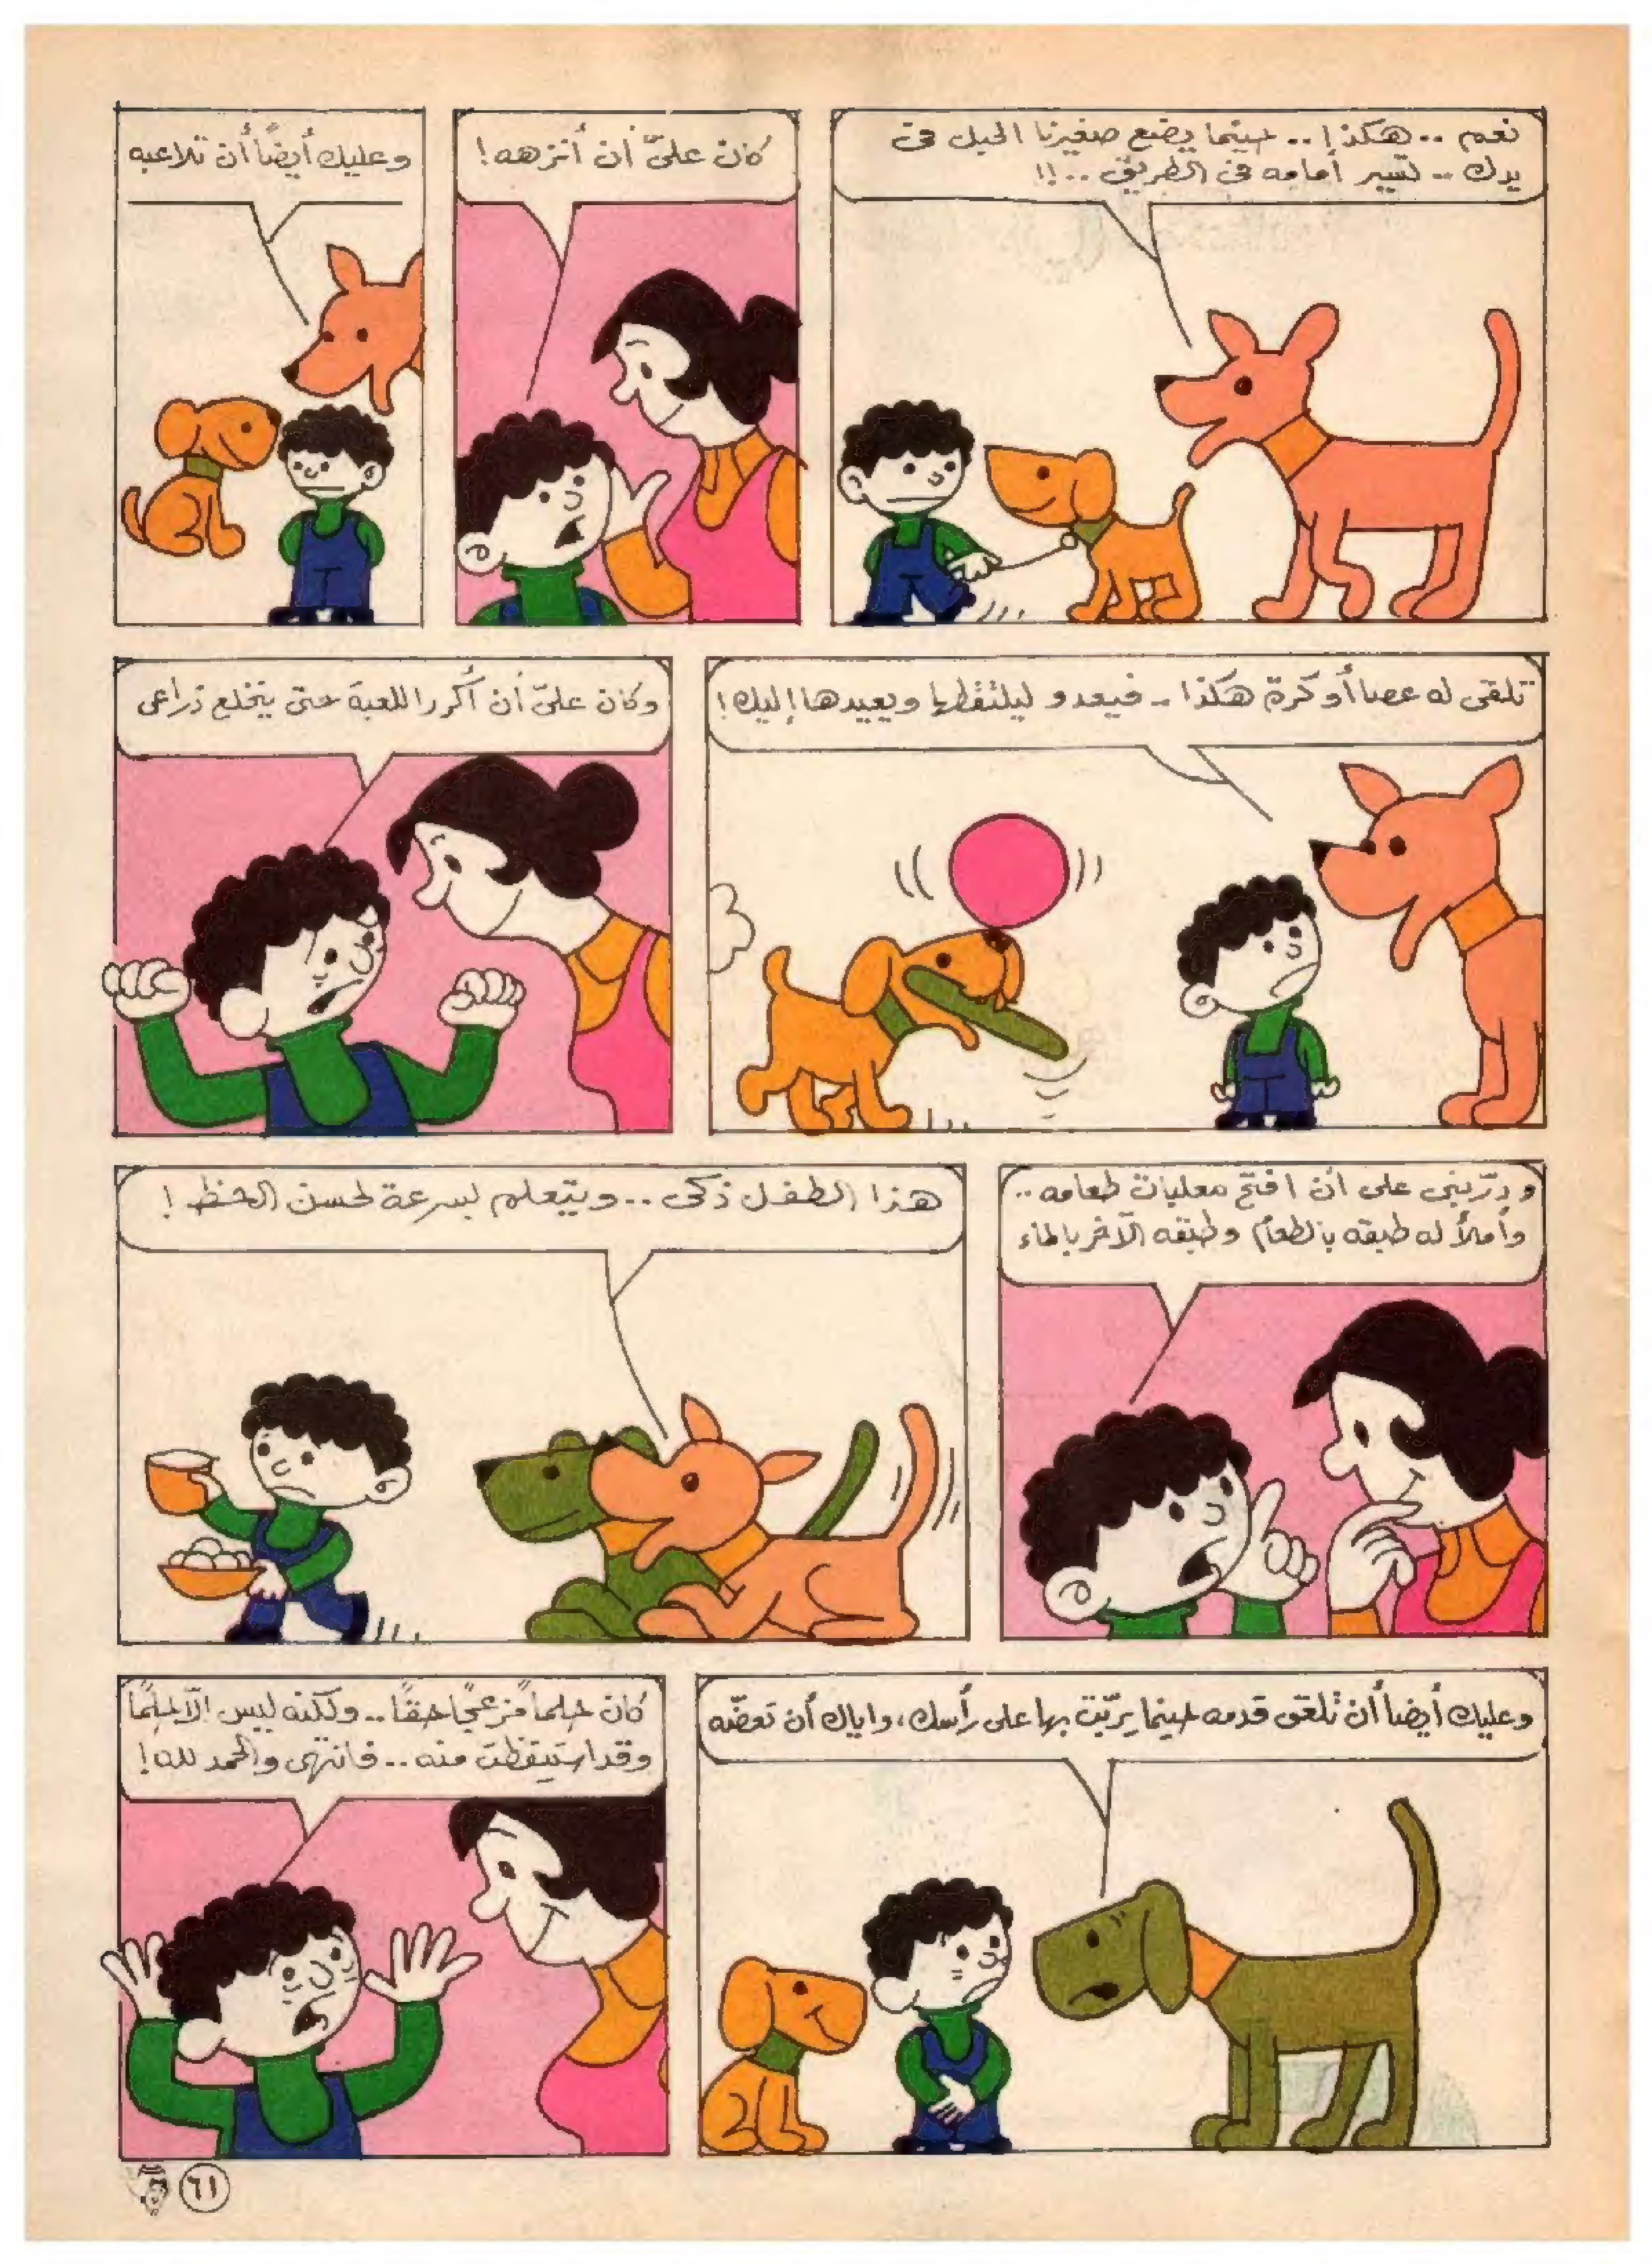 نعم .. هكذا .. حينما يضع صغيرنا الحبل فى
يدك .. تسير أمامه فى الطريق ..!!
كان علىّ أن أنزهه!
وعليك أيضاً أن تلاعبه
تلقى له عصا أو كرة هكذا .. فيعدو ليلتقطها ويعيدها إليك!
وكان علىّ أن أكرر اللعبة حتى ينخلع ذراعى
ودرّبنى على أن افتح معلبات طعامه ..
وأملأ له طبقه بالطعام وطبقه الآخر بالماء
هذا الطفل ذكى .. ويتعلم بسرعة لحسن الحظ!
وعليك أيضاً أن تلعق قدمه حينما يربّت بها على رأسك، واياك أن تعضّه
كان حلماً مزعجاً حقاً .. ولكنه ليس الّا حلماً
وقد استيقظت منه .. فانتهى والحمد لله!
٦١